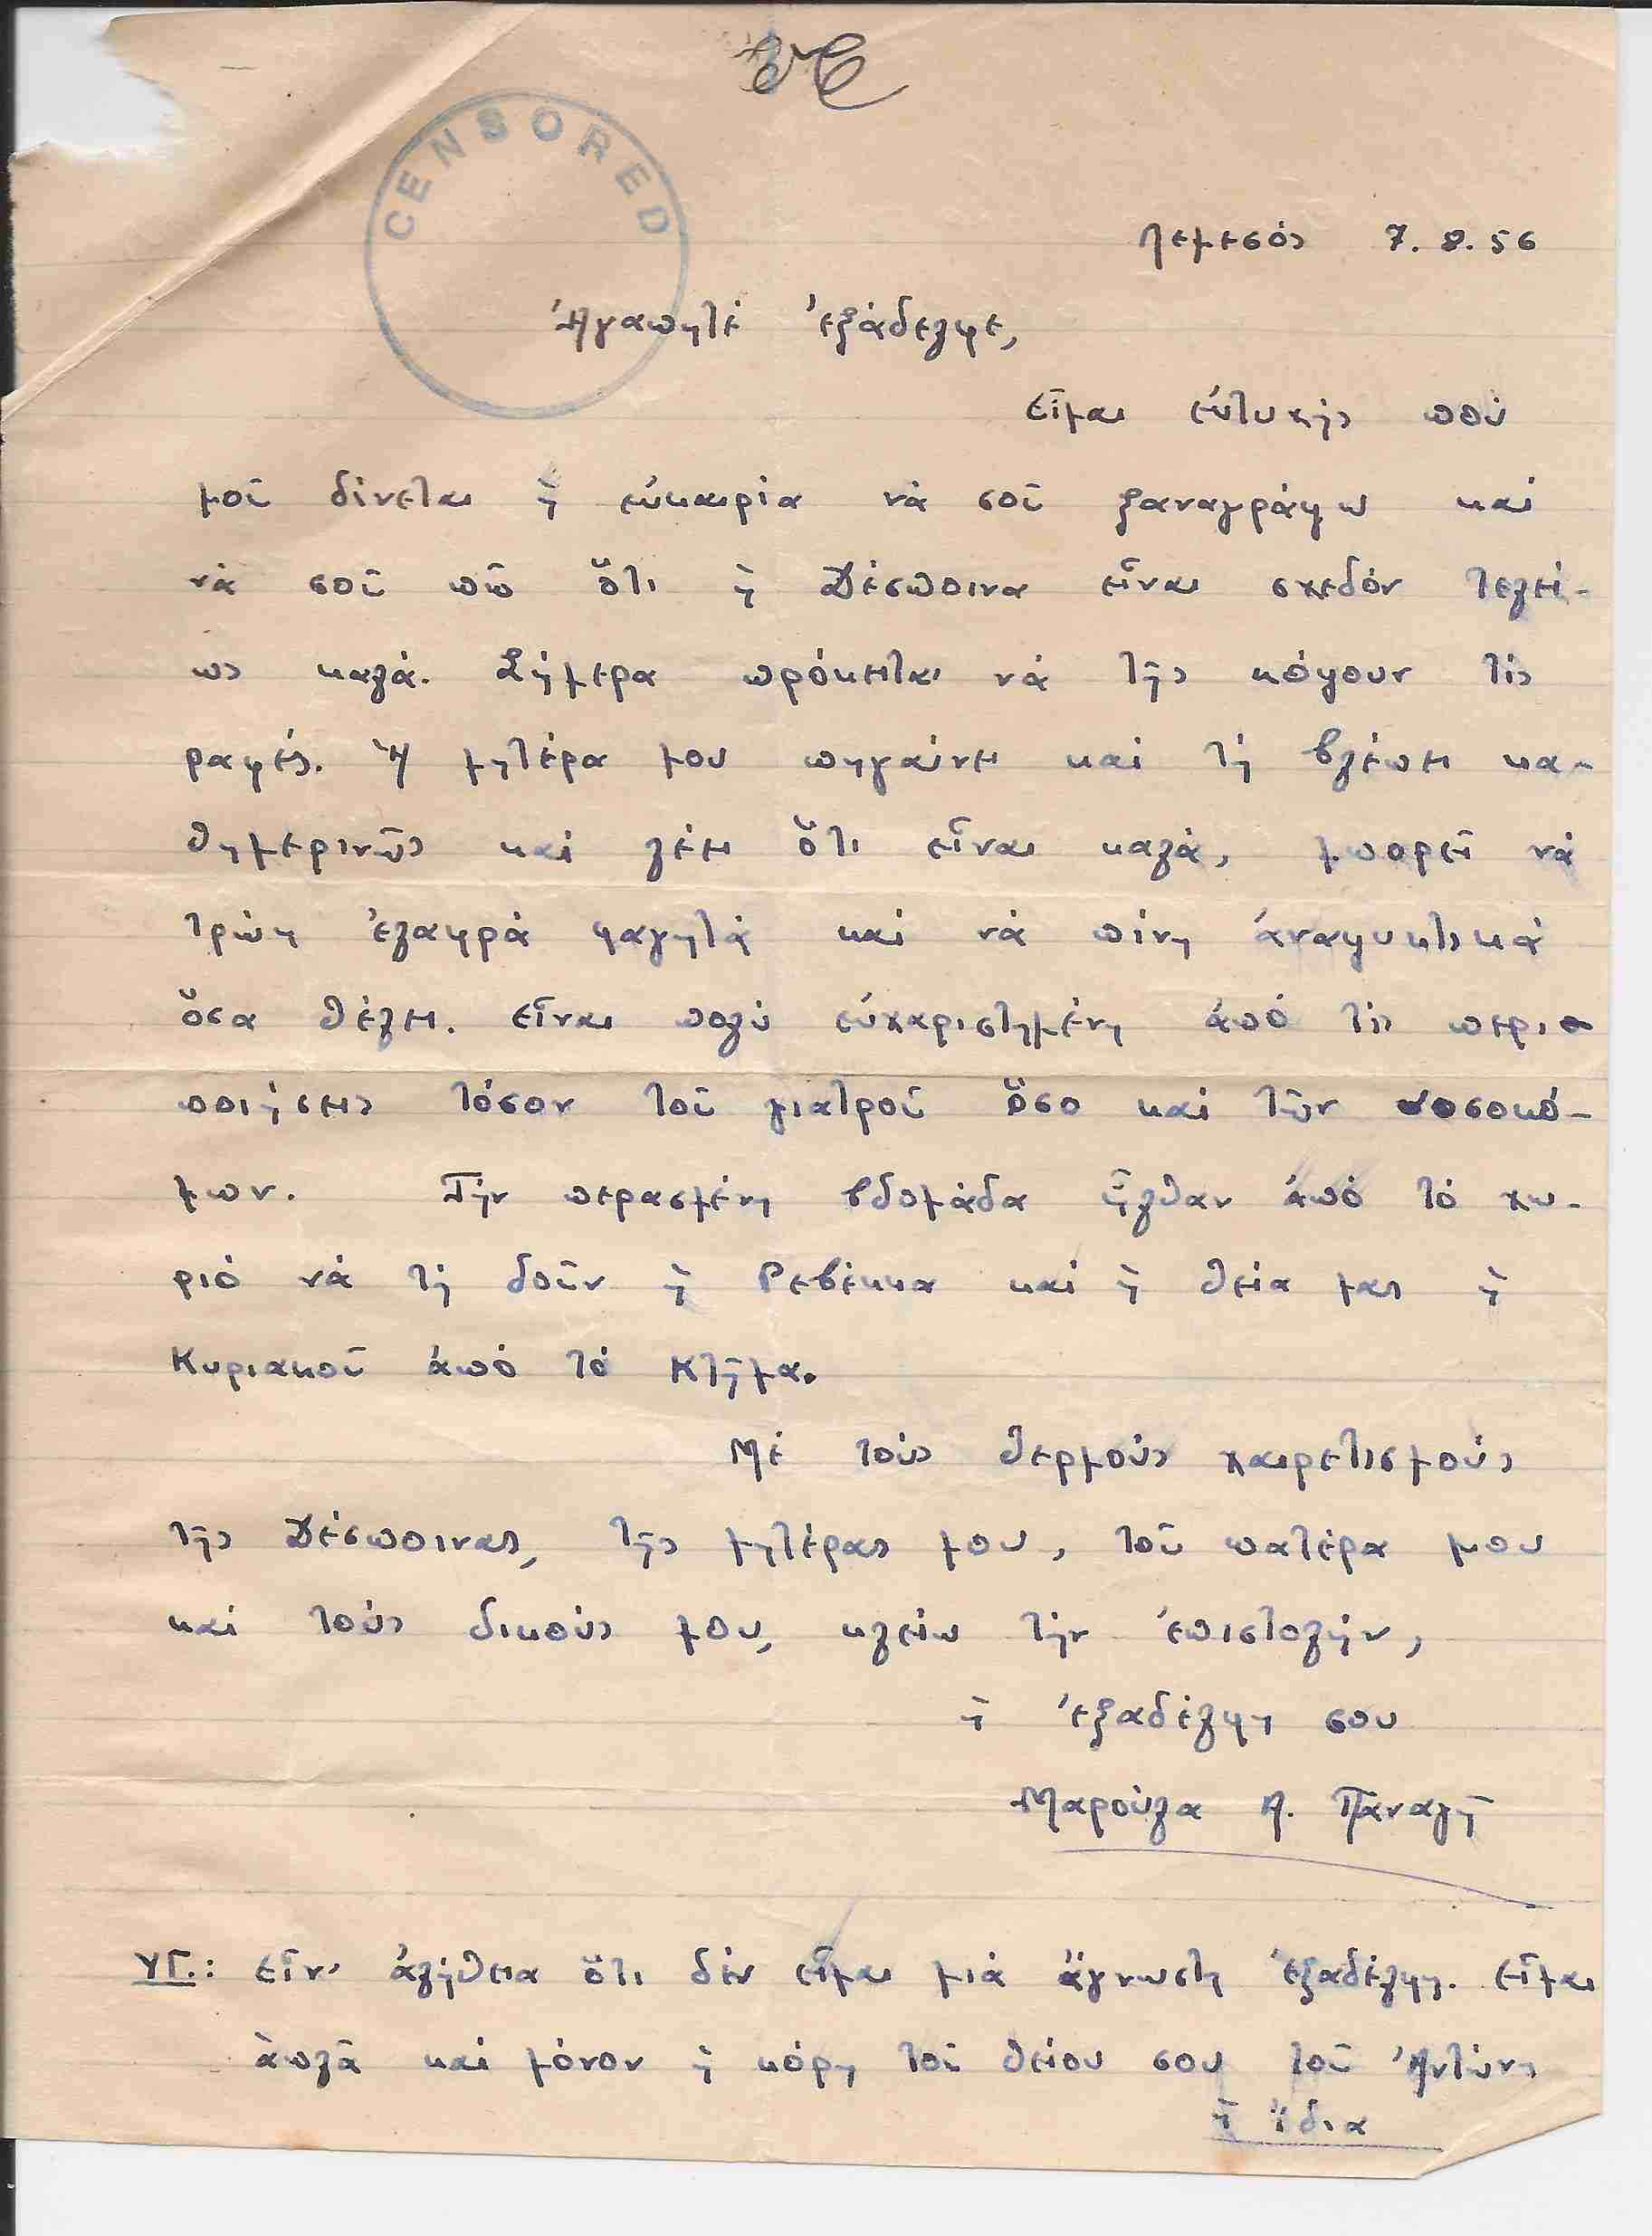 CENSORED
Λεμεσός 7.8.56
Ἀγαπητέ ἐξάδελφε,
εἶμαι εὐτυχής πού
μοῦ δίνεται ἡ εὐκαιρία νά σοῦ ξαναγράψω καί
νά σοῦ πῶ ὅτι ἡ Δέσποινα εἶναι σχεδόν τελεί-
ως καλά. Σήμερα πρόκειται νά τῆς κόψουν τίς
ραφές. Ἡ μητέρα μου πηγαίνει καί τή βλέπει κα-
θημερινῶς καί λέει ὅτι εἶναι καλά, μπορεῖ νά
τρώῃ ἐλαφρά φαγητά καί νά πίνῃ ἀναψυκτικά
ὅσα θέλει. εἶναι πολύ εὐχαριστημένη ἀπό τίς περι-
ποιήσεις τόσον τοῦ γιατροῦ ὅσο καί τῶν νοσοκό-
μων. Τήν περασμένη βδομάδα ἦλθαν ἀπό τό χω-
ριό νά τή δοῦν ἡ Ρεβέκκα καί ἡ θεία μας ἡ
Κυριακοῦ ἀπό τό Κτῆμα.
Μέ τούς θερμούς χαιρετισμούς
τῆς Δέσποινας, τῆς μητέρας μου, τοῦ πατέρα μου
καί τούς δικούς μου, κλείω τήν ἐπιστολήν,
ἡ ἐξαδέλφη σου
Μαρούλα Α. Παναγῆ
ΥΓ.: εἶν' ἀλήθεια ὅτι δέν εἶμαι μιά ἄγνωστη ἐξαδέλφη. εἶμαι
ἁπλᾶ καί μόνον ἡ κόρη τοῦ θείου σου τοῦ Ἀντώνη
ἡ ἴδια